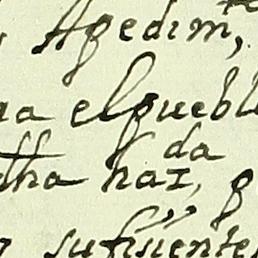 Apedimto,
ga elpuebl
dha hazda, q
sufisiente